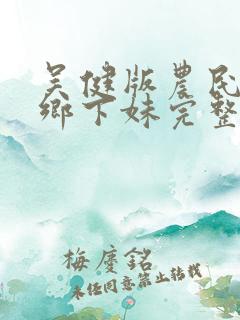 吴健版農民
鄉下妹完整
梅慶銘
未经同意禁止转载